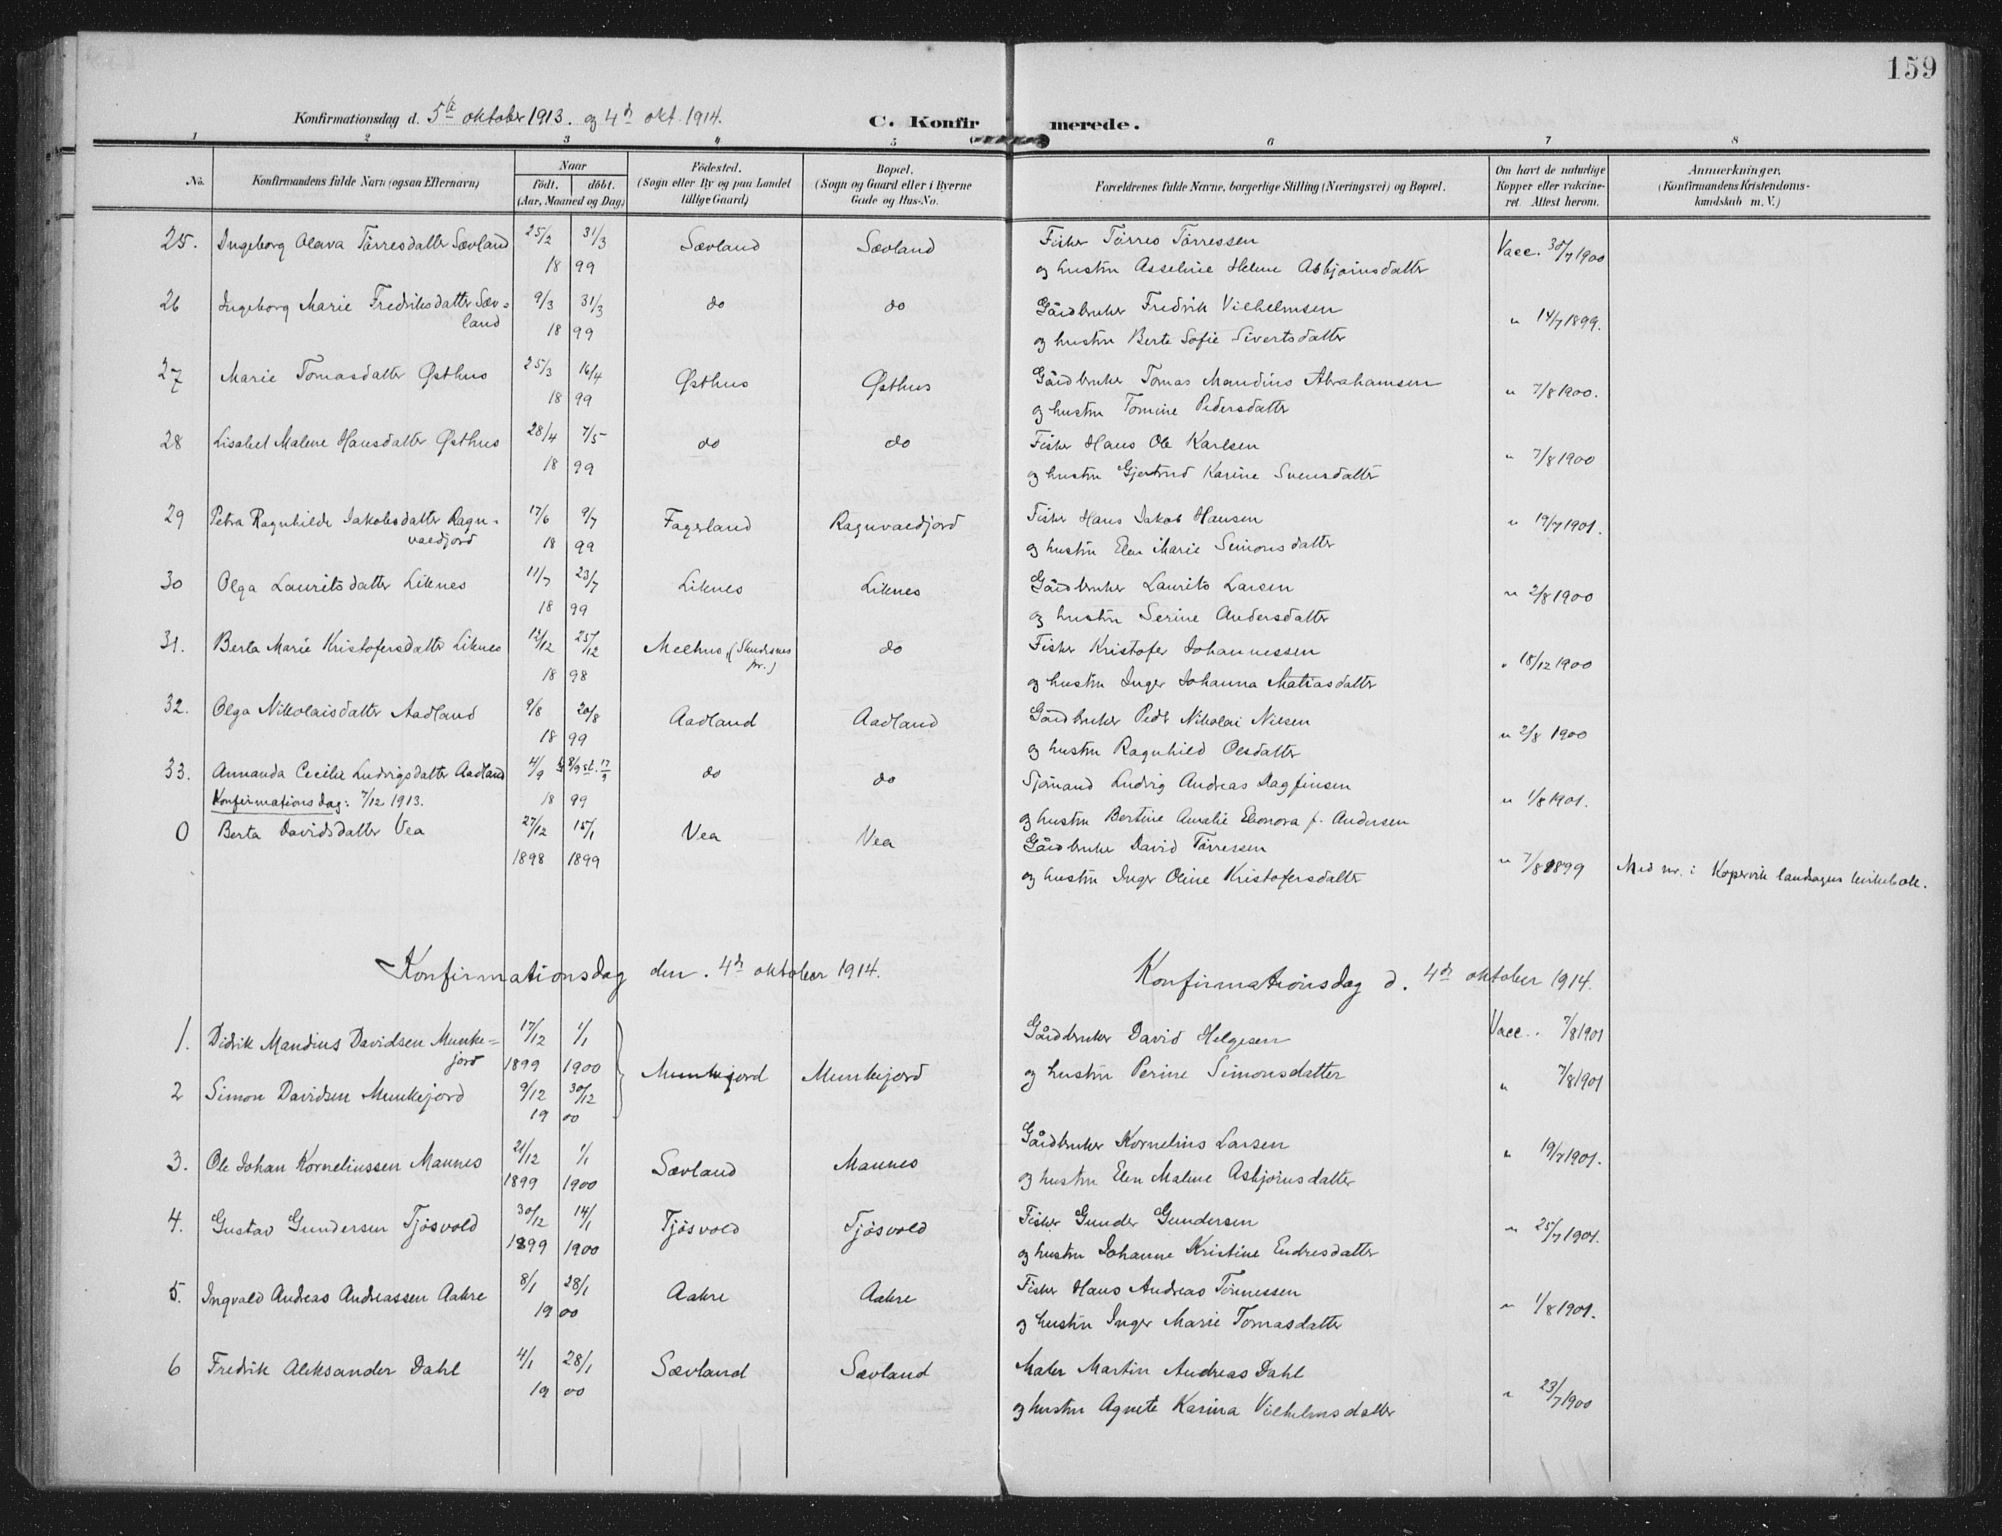 159
Konfirmationsdag d. 5te oktober 1913. og 4de okt. 1914.
C. Konfirmerede.
1 2 3 4 5 6 7 8
No.
Konfirmandens fulde Navn (ogsaa Efternavn)
Naar
födt. döbt.
(Aar, Maaned og Dag)
Födested.
(Sogn eller By og paa Landet
tillige Gaard)
Bopæl.
(Sogn og Gaard eller i Byerne
Gade og Hus-No.
Forældrenes fulde Navne, borgerlige Stilling (Næringsvei) og Bopæl.
Om havt de naturlige
Kopper eller vakcine-
ret. Attest herom.
Anmærkninger,
(Konfirmandens Kristendoms-
kundskab m. V.)
25. Ingeborg Olava Tørresdatter Sævland 25/2 31/3 Sævland Sævland Fisker Tørres Tørressen Vacc. 30/7 1900
18 99 og hustru Asseline Helene Asbjørnsdatter
26 Ingeborg Marie Fredriksdatter Sæv- 9/3 31/3 do do Gårdbruker Fredrik Vilhelmsen " 14/7 1899.
land 18 99 og hustru Berte Sofie Sivertsdatter
27 Marie Tomasdatter Østhus 25/3 16/4 Østhus Østhus Gårdbruker Tomas Mandius Abrahamsen " 7/8 1900.
18 99 og hustru Tomine Pedersdatter
28 Lisabet Malene Hansdatter Østhus 28/4 7/5 do do Fisker Hans Ole Karlsen " 7/8 1900
18 99 og hustru Gjertrud Karine Svensdatter
29 Petra Ragnhilde Jakobsdatter Ragn- 17/6 9/7 Fagerland Ragnvaldjord Fisker Hans Jakob Hansen " 19/7 1901.
valdjord 18 99 og hustru Elen Marie Simonsdatter
30 Olga Lauritsdatter Liknes 11/7 23/7 Liknes Liknes Gårdbruker Laurits Larsen " 2/8 1900
18 99 og hustru Serine Andersdatter
31. Berta Marie Kristofersdatter Liknes 12/12 25/12 Melhus, (Skudesnes do Fisker Kristofer Johannessen " 18/12 1900
pr.)
18 98 og hustru Inger Johanna Matiasdatter
32. Olga Nikolaisdatter Aadland 9/8 20/8 Aadland Aadland Gårdbruker Peder Nikolai Nilsen " 2/8 1900
18 99 og hustru Ragnhild Olsdatter
33. Annanda Cecilie Ludvigsdatter Aadland 4/9 do do Sjömand Ludvig Andreas Dagfinsen " 1/8 1901.
Konfirmationsdag: 7/12 1913. 18 99 og hustru Bertine Amalie Elenora f. Andersen
0 Berta Davidsdatter Vea 27/12 15/1 Vea Vea Gårdbruker David Tørressen " 7/8 1899 Med nr. i Kopervik landsogns kirkebok.
1898 1899 og hustru Inger Oline Kristofersdatter
Konfirmationsdag den. 4de oktober 1914. Konfirmationsdag d. 4de oktober 1914.
1. Didrik Mandius Davidsen Munke- 17/12 1/1 Gårdbruker David Helgesen Vacc. 7/8 1901
jord 1899 1900 Munkejord Munkejord og hustru Perine Simonsdatter
2 Simon Davidsen Munkejord 9/12 30/12 " 7/8 1901
19 00
3. Ole Johan Korneliussen Mannes 21/12 1/1 Sævland Mannes Gårdbruker Kornelius Larsen " 19/7 1901.
1899 1900 og hustru Elen Malene Asbjørnsdatter
4. Gustav Gundersen Tjøsvold 30/12 14/1 Tjøsvold Tjøsvold Fisker Gunder Gundersen " 25/7 1901.
1899 1900 og hustru Johanne Kristine Endresdatter
5. Ingvald Andreas Andreassen Aakre 8/1 28/1 Aakre Aakre Fisker Hans Andreas Tønnessen " 1/8 1901.
19 00 og hustru Inger Marie Tomasdatter
6 Fredrik Aleksander Dahl 4/1 28/1 Sævland Sævland Maler Martin Andreas Dahl " 23/7 1900
19 00 og hustru Agnete Karina Vilhelmsdatter